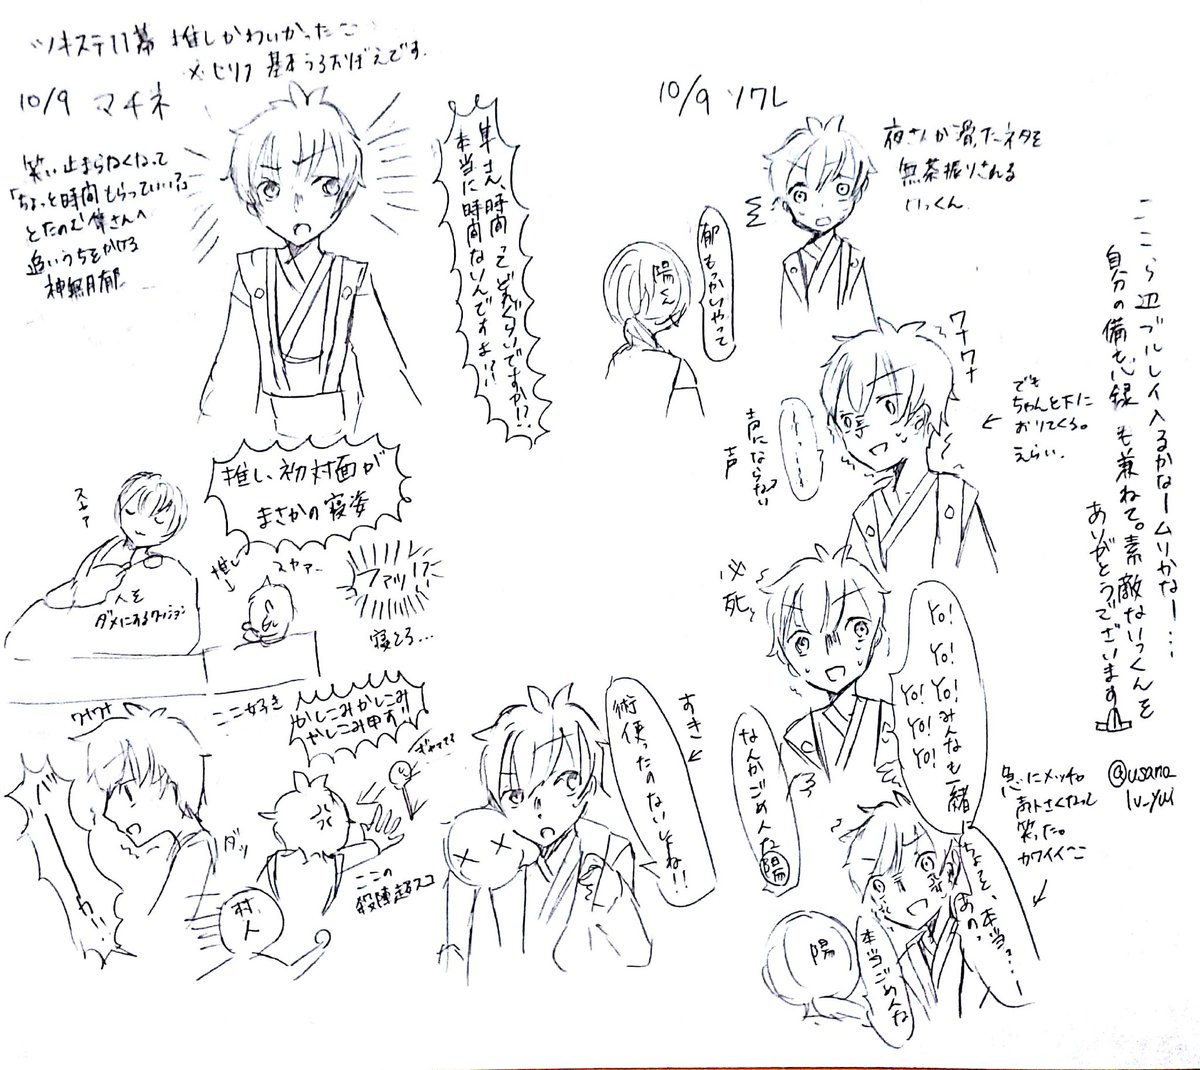 ツキステ11幕 推しかわいかった〜
※セリフ 基本うろおぼえです.
10/9 マチネ
笑い止まらなくなって
「ちょっと時間もらっていい?」
とたのむ隼さんへ
追いうちをかける
神無月郁
隼さん、時間ってどれぐらいですか!?
本当に時間ないんですよ!?
推し、初対面が
まさかの寝姿
スヤァ
人を
ダメにするクッション
推し
スヤァ…
ファッ!?
寝とる…
ここ好き
かしこみかしこみ
かしこみ申す!!
ワナワナ
ダッ
村人
ここの
殺陣超スコ
すき
術使ったのないしょね!!
10/9 ソワレ
夜さんが滑ったネタを
無茶振りされる
いっくん.
陽くん
郁もっかいやって
ワナワナ
声にならない
声
でも
ちゃんと下に
おりてくる。
えらい.
必死
Yo!
Yo!
Yo! Yo! みんなも一緒に
Yo! Yo!
なんかごめんな
陽
ちょっと、本当っ…
あのっ
陽
本当ごめんな
急にメッチャ
声小さくなって
笑った。
カワイイ〜
ここら辺ブルーレイ入るかなームリかなー…
自分の備忘録も兼ねて。素敵ないっくんを
ありがとうございます
@usana_
lv_yui